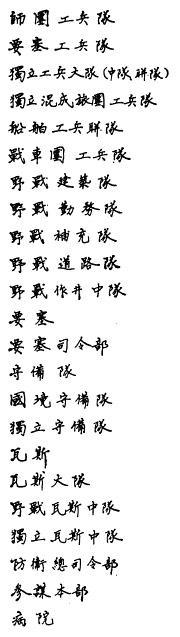 師團工兵隊
要塞工兵隊
獨立工兵大隊(中隊,聯隊)
獨立混成旅團工兵隊
船舶工兵聯隊
戰車團工兵隊
野戰建築隊
野戰勤務隊
野戰補充隊
野戰道路隊
野戰作井中隊
要塞
要塞司令部
守備隊
國境守備隊
獨立守備隊
瓦斯
瓦斯大隊
野戰瓦斯中隊
獨立瓦斯中隊
防衛總司令部
參謀本部
病院